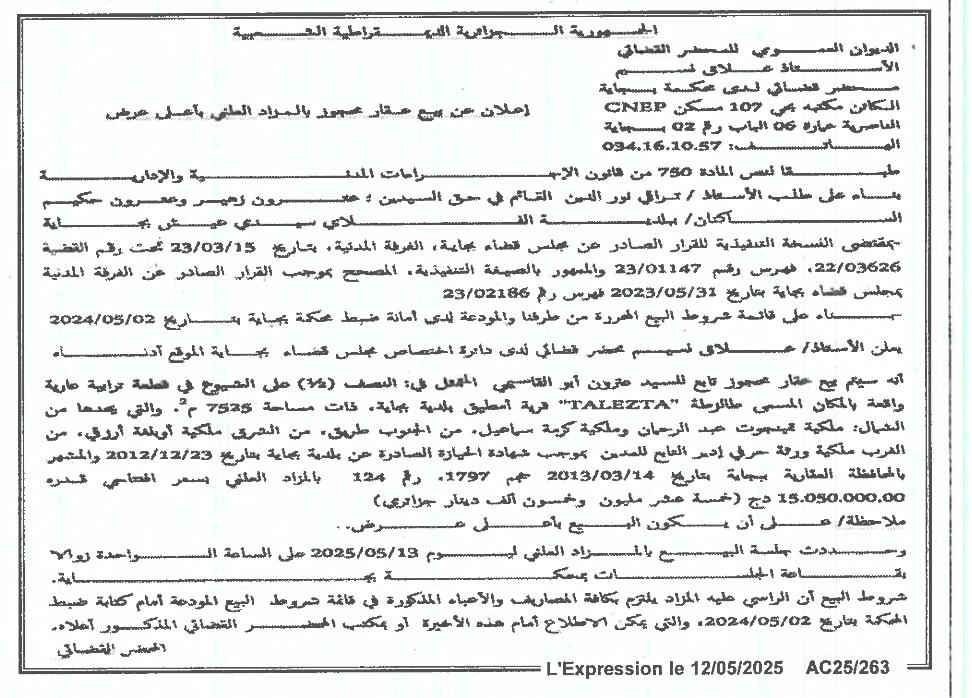 الجمهورية الجزائرية الديمقراطية الشعبية
الديوان العمومي للمحضر القضائي
الأستاذ علاق نسيم
محضر قضائي لدى محكمة بجاية
الكائن مكتبه بحي 107 مسكن CNEP
الناصرية عمارة 06 الباب رقم 02 بجاية
الهاتف: 034.16.10.57
إعلان عن بيع عقار محجوز بالمزاد العلني بأعلى عرض
طبقا لنص المادة 750 من قانون الإجراءات المدنية والإدارية
بناء على طلب الأستاذ / تراقي نور الدين القائم في حق السيدين : عترون زهير وعترون حكيم
الساكنان/ ببلدية الفلاي سيدي عيش بجاية
بمقتضى النسخة التنفيذية للقرار الصادر عن مجلس قضاء بجاية، الغرفة المدنية، بتاريخ 23/03/15 تحت رقم القضية
22/03626، فهرس رقم 23/01147 والممهور بالصيغة التنفيذية، المصحح بموجب القرار الصادر عن الغرفة المدنية
بمجلس قضاء بجاية بتاريخ 2023/05/31 فهرس رقم 23/02186
بناء على قائمة شروط البيع المحررة من طرفنا والمودعة لدى أمانة ضبط محكمة بجاية بتاريخ 2024/05/02
يعلن الأستاذ/ علاق نسيم محضر قضائي لدى دائرة اختصاص مجلس قضاء بجاية الموقع أدناه
أنه سيتم بيع عقار محجوز تابع للسيد عترون أبو القاسمي المتمثل في: النصف (½) على الشيوع في قطعة ترابية عارية
واقعة بالمكان المسمى طالزطة "TALEZTA" قرية أمطيق بلدية بجاية، ذات مساحة 7525 م²، والتي يحدها من
الشمال: ملكية تميجوت عبد الرحمان وملكية كرمة سماعيل، من الجنوب طريق، من الشرق ملكية أوبلغة أرزقي، من
الغرب ملكية ورثة حرفي إدير التابع للمدين بموجب شهادة الحيازة الصادرة عن بلدية بجاية بتاريخ 2012/12/23 والمشهر
بالمحافظة العقارية ببجاية بتاريخ 2013/03/14 حجم 1797، رقم 124 بالمزاد العلني بسعر افتتاحي قدره
15.050.000.00 دج (خمسة عشر مليون وخمسون ألف دينار جزائري)
ملاحظة/ على أن يكون البيع بأعلى عرض..
وحددت جلسة البيع بالمزاد العلني ليوم 2025/05/13 على الساعة الواحدة زوالا
بقاعة الجلسات بمحكمة بجاية.
شروط البيع أن الراسي عليه المزاد يلتزم بكافة المصاريف والأعباء المذكورة في قائمة شروط البيع المودعة أمام كتابة ضبط
المحكمة بتاريخ 2024/05/02، والتي يمكن الاطلاع أمام هذه الأخيرة أو بمكتب المحضر القضائي المذكور أعلاه.
المحضر القضائي
L'Expression le 12/05/2025 AC25/263